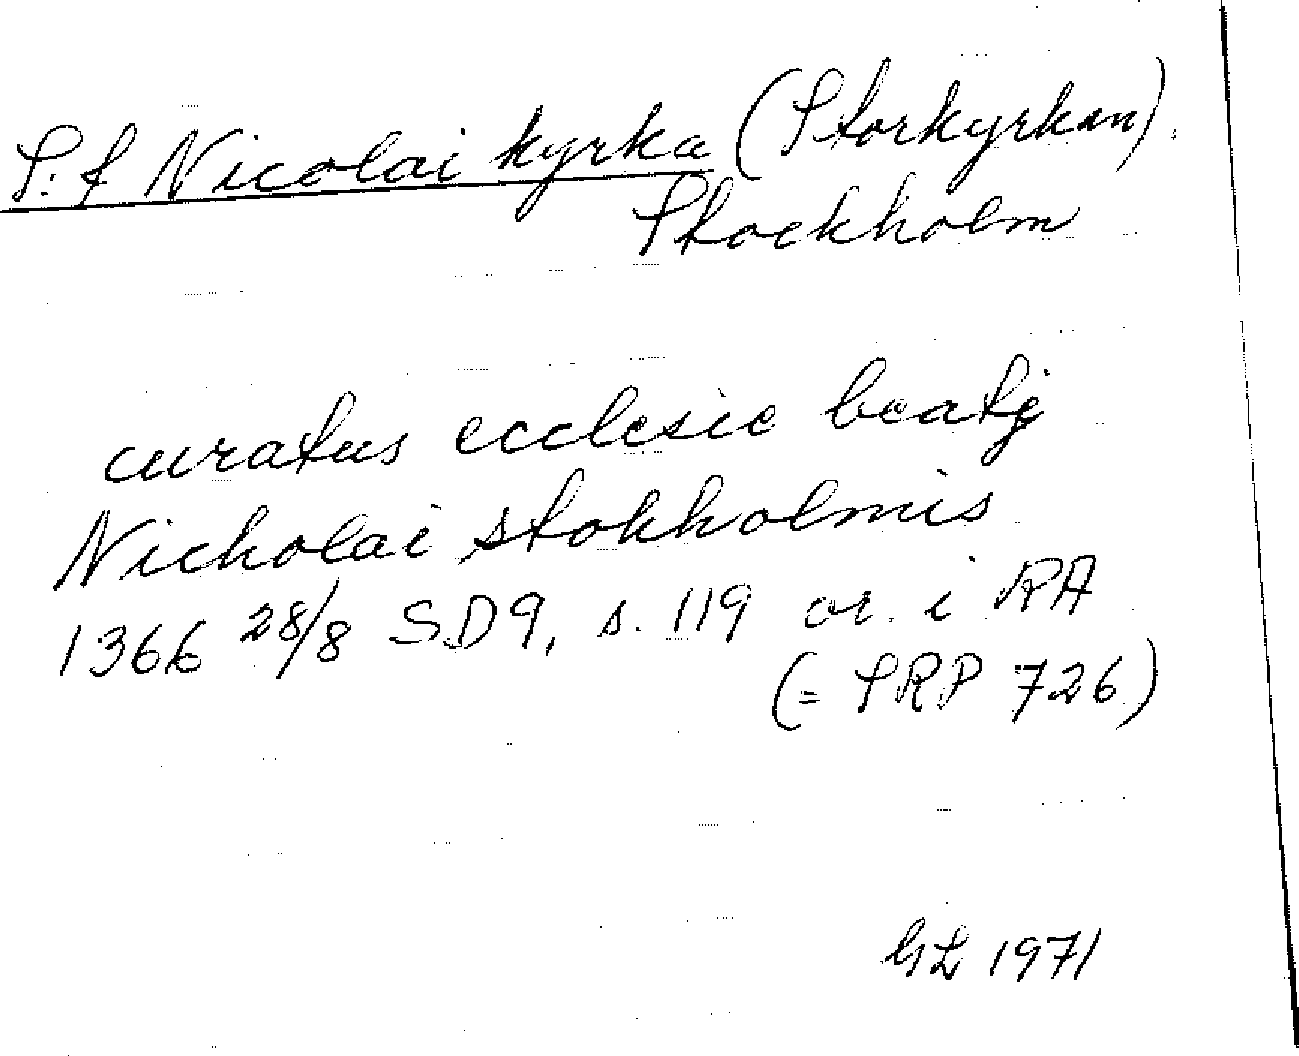 S:t Nicolai kyrka (Storkyrkan)
Stockholm
curatus ecclesie beatj
Nicholai stokholmis
1366 28/8 SD9, s. 119 or. i RA
(= SRP 726)
GL 1971